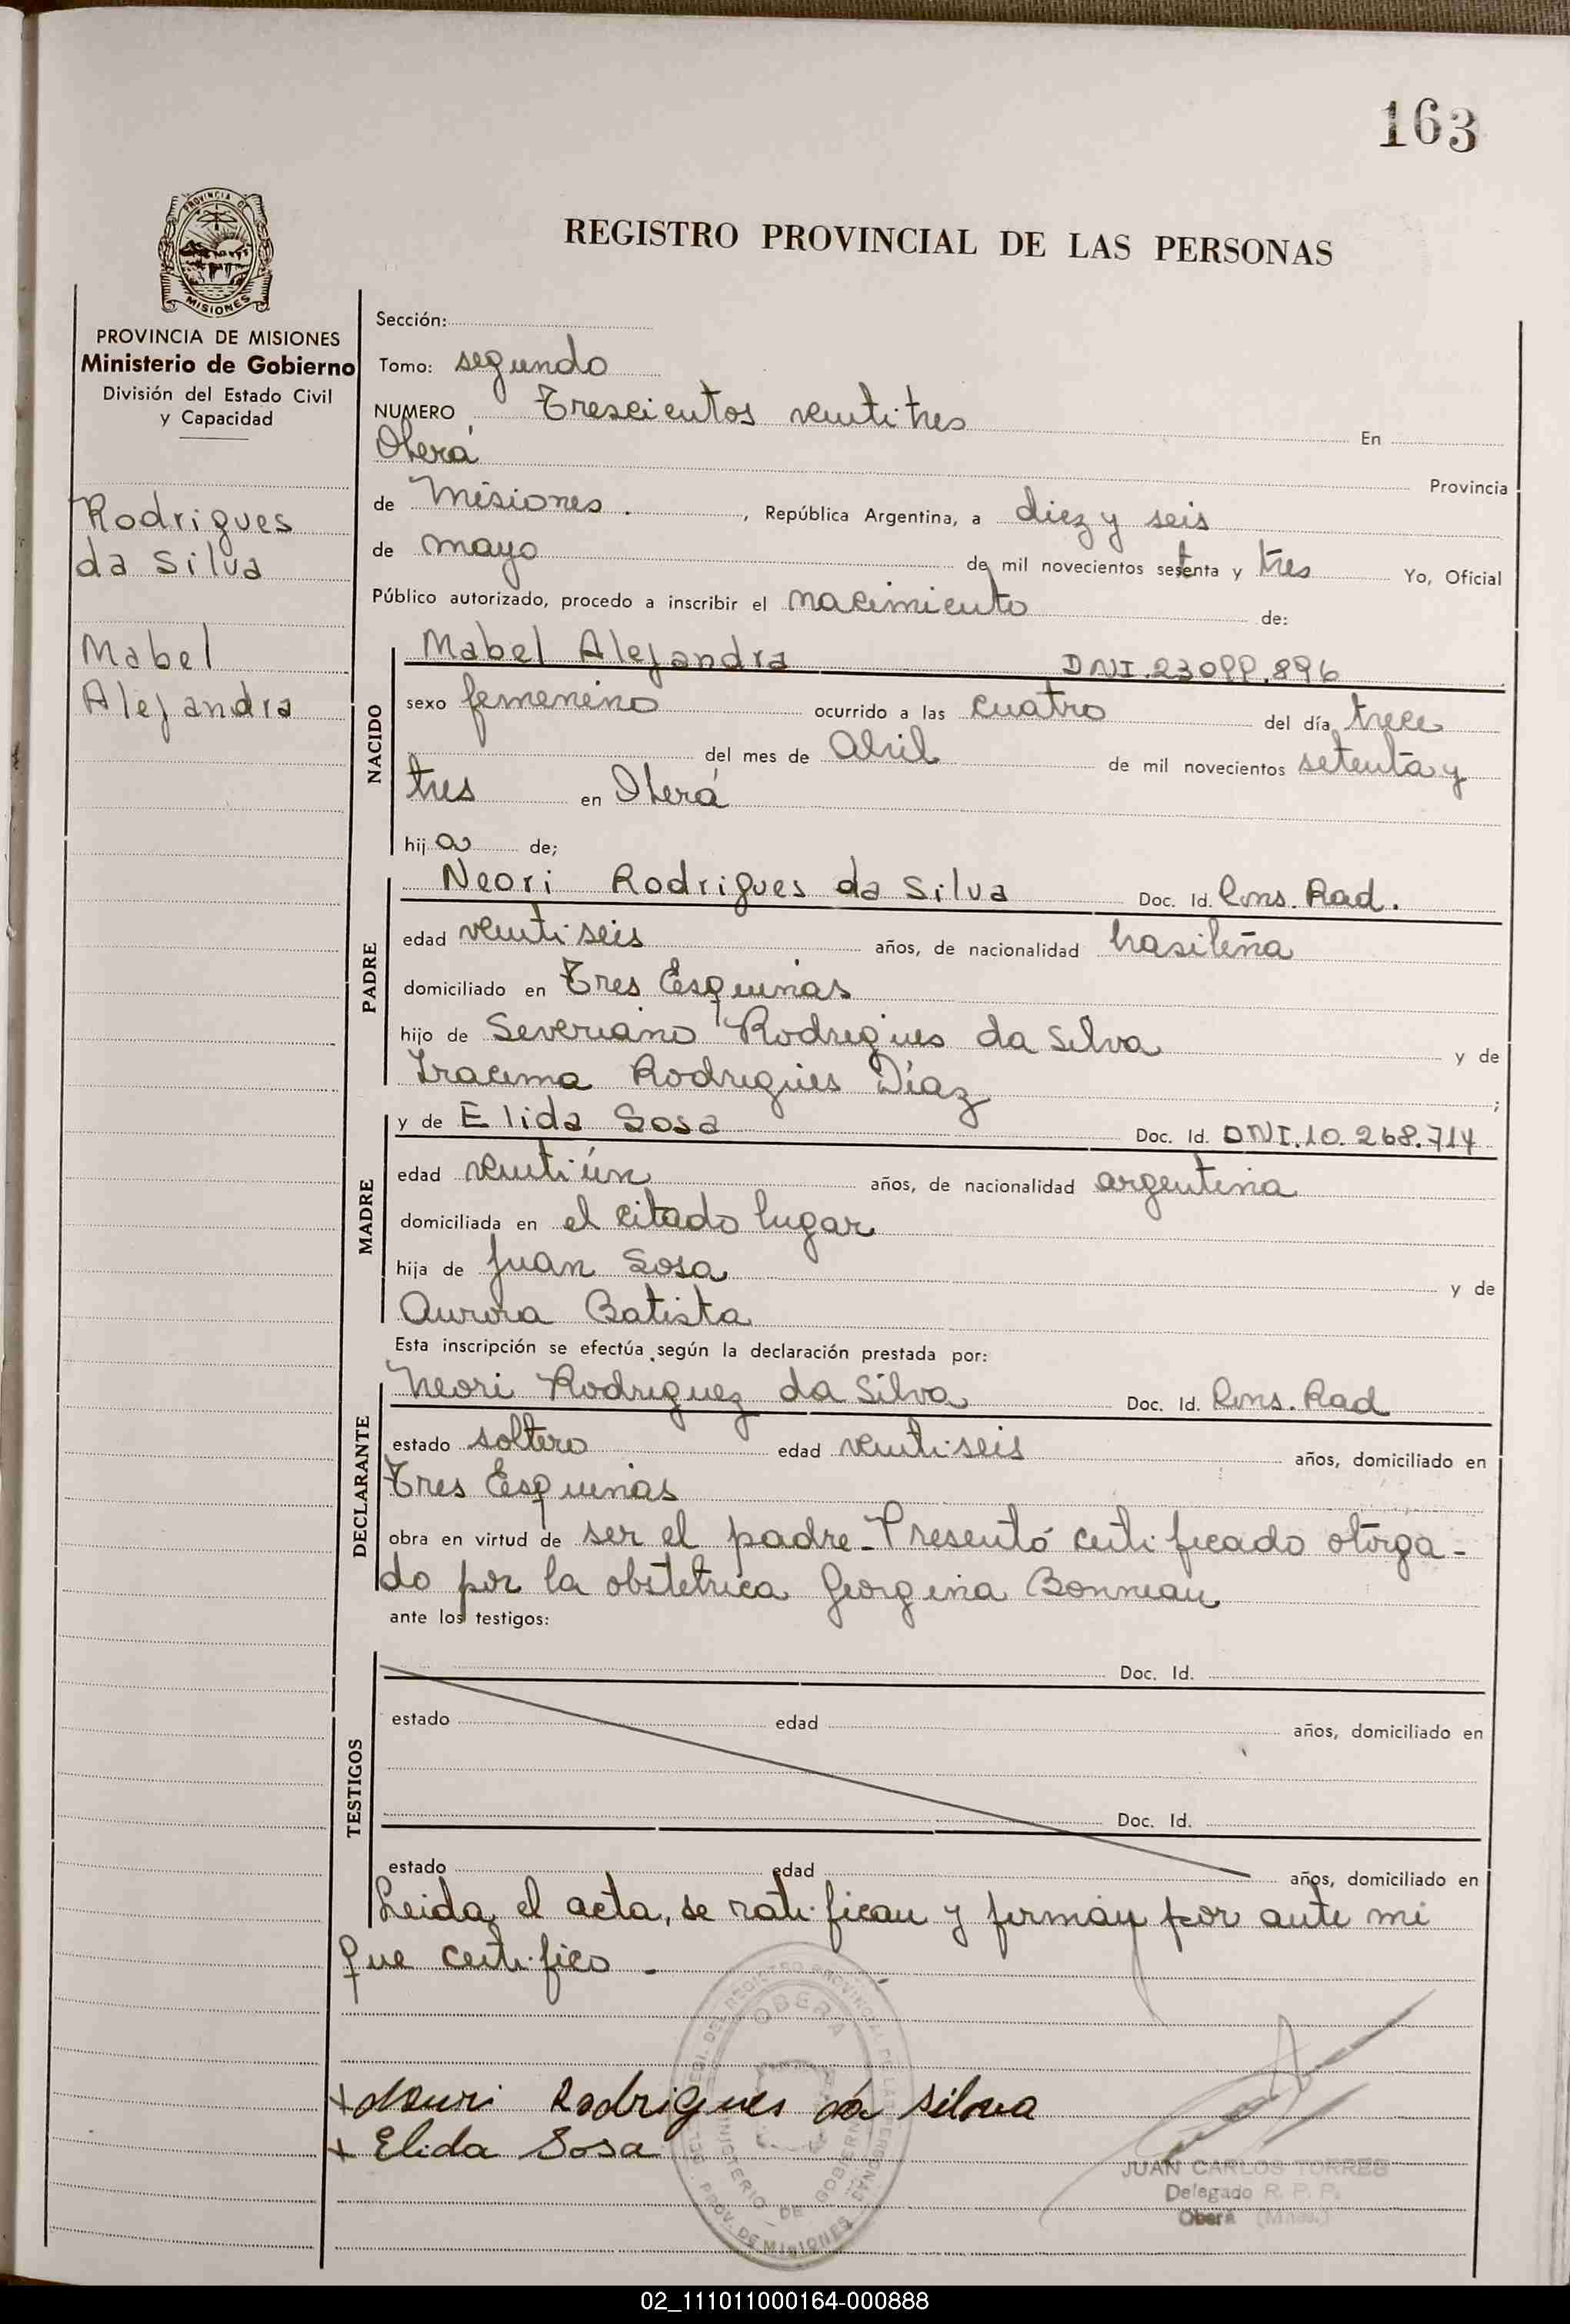 163
PROVINCIA DE
MISIONES
REGISTRO PROVINCIAL DE LAS PERSONAS
PROVINCIA DE MISIONES
Ministerio de Gobierno
División del Estado Civil
y Capacidad
Rodrigues
da Silva
Mabel
Alejandra
Sección:
Tomo: segundo
NUMERO Trescientos veinti tres En
Oberá Provincia
de Misiones. , República Argentina, a diez y seis
de mayo de mil novecientos setenta y tres Yo, Oficial
Público autorizado, procedo a inscribir el nacimiento de:
NACIDO
Mabel Alejandra DNI.23099.896
sexo femenino ocurrido a las cuatro del día trece
del mes de Abril de mil novecientos setenta y
tres en Oberá
hija de;
PADRE
Neori Rodrigues da Silva Doc. Id. Cons. Rad.
edad veinti seis años, de nacionalidad brasileña
domiciliado en Tres Esquinas
hijo de Severiano Rodrigues da Silva y de
Iracema Rodrigues Díaz ;
MADRE
y de Elida Sosa Doc. Id. DNI.10.268.714
edad veinti ún años, de nacionalidad argentina
domiciliada en el citado lugar
hija de Juan Sosa y de
Aurora Batista
Esta inscripción se efectúa según la declaración prestada por:
DECLARANTE
Neori Rodriguez da Silva Doc. Id. Cons. Rad
estado soltero edad veinti seis años, domiciliado en
Tres Esquinas
obra en virtud de ser el padre- Presentó certificado otorga-
do por la obstetrica Georgina Bonneau
ante los testigos:
TESTIGOS
Doc. Id.
estado edad años, domiciliado en
Doc. Id.
estado edad años, domiciliado en
Leida el acta, se ratifican y firman por ante mi
que certifico -
OBERA
MINISTERIO DE GOBIERNO
PROV. DE MISIONES
Rodrigues da Silva
Elida Sosa
JUAN CARLOS TORRES
Delegado R. P. P.
Oberá (Mnes.)
02_111011000164-000888